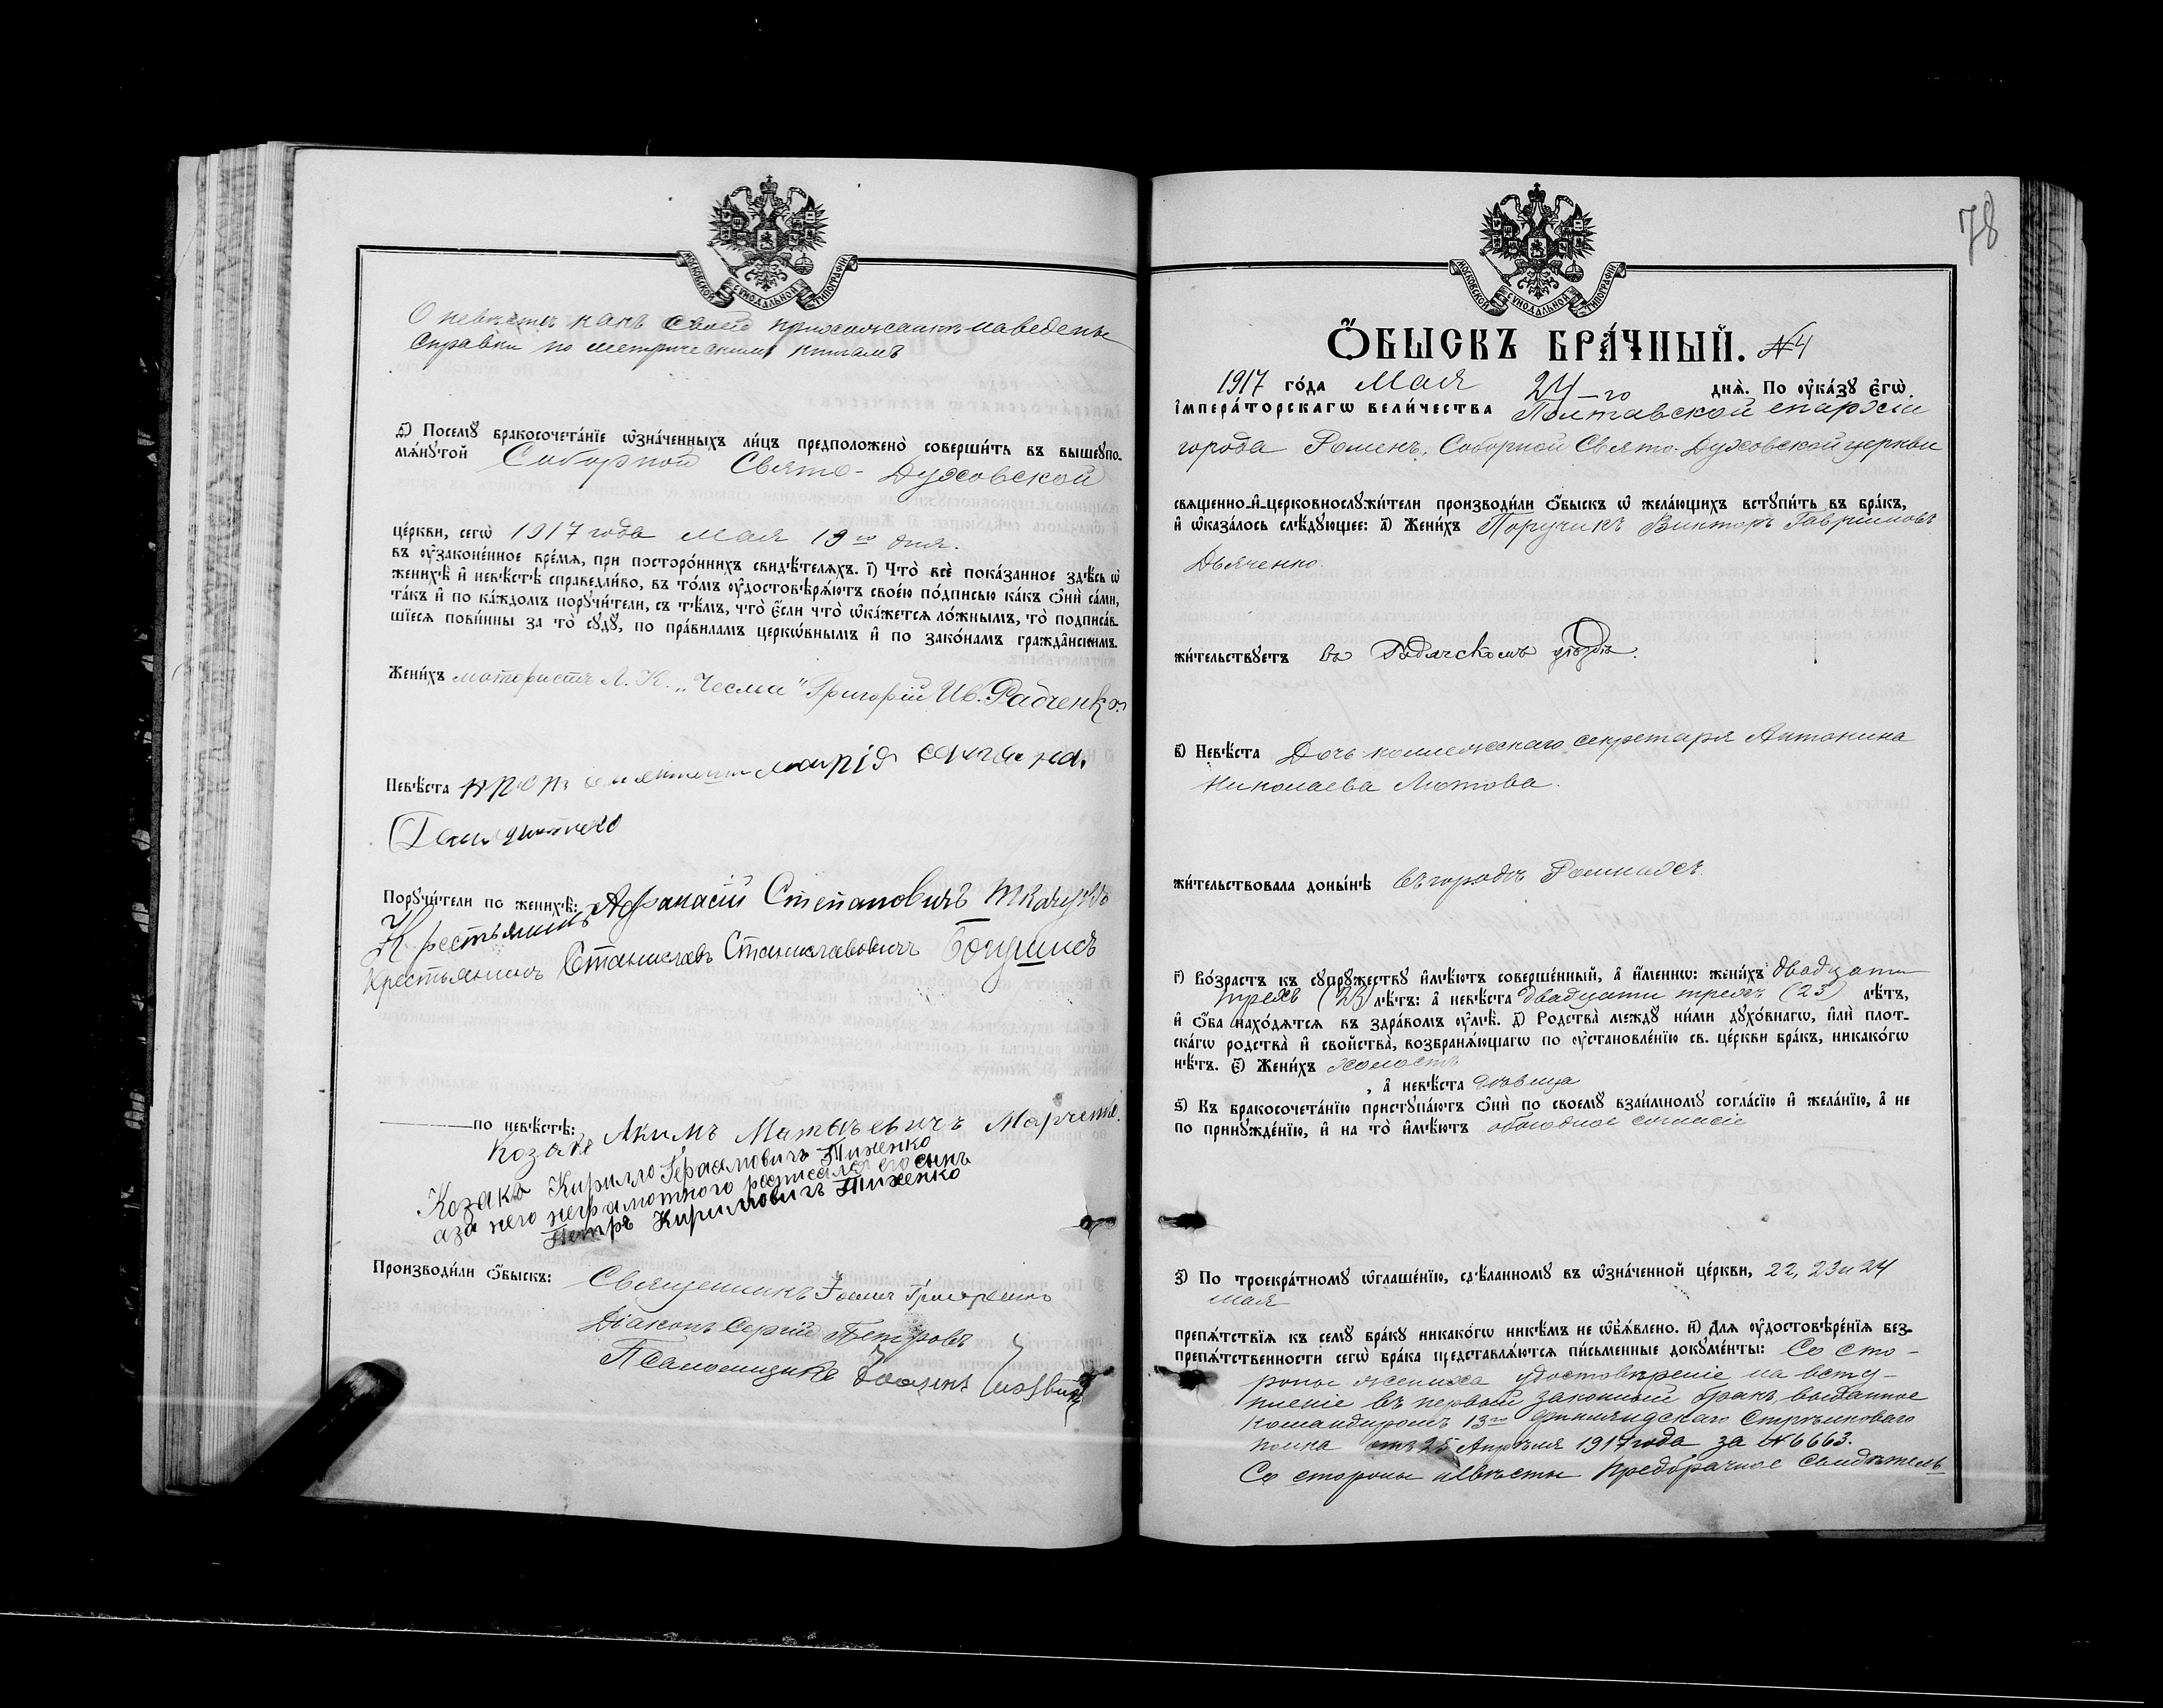 МОСКОВСКОЙ СѴНОДАЛЬНОЙ ТИПОГРАФІИ
О невѣстѣ какъ своей прихожанкѣ наведены
справки по метрическимъ книгамъ
Ѳ҃) Посемꙋ бракосочета́нїе ѡ҆зна́ченныхъ ли́цъ предположено̀ соверши́ть въ вышеꙋпо-
мѧ́нꙋтой Соборной Свято-Духовской
це́ркви, сегѡ̀ 1917 года мая 19го дня.
въ ᲂу҆законе́нное вре́мѧ, при посторо́ннихъ свидѣ́телѧхъ. І҃) Что̀ всѐ пока́занное здѣ́сь ѡ҆
женихѣ̀ и҆ невѣ́стѣ справедли́во, въ то́мъ ᲂу҆достовѣрѧ́ютъ свое́ю по́дписью ка́къ ѻ҆нѝ са́ми,
та́къ и҆ по ка́ждомъ порꙋчи́тели, съ тѣ́мъ, что̀ є҆́сли что̀ ѡ҆ка́жетсѧ ло́жнымъ, то̀ подписа́в-
шїесѧ пови́нны за то̀ сꙋдꙋ̀, по пра́виламъ церко́внымъ и҆ по зако́намъ гражда́нскимъ.
Жени́хъ мотористъ Л. К. „Чесма" Григорій Ив. Радченко
Невѣ́ста марія
Порꙋчи́тели по женихѣ̀: Афанасій Степановичъ Ткачукъ
Крестьянинъ
Крестьянинъ Станиславъ Станиславовичъ
по невѣ́стѣ:
Козакъ Акимъ Матвѣевичъ
Козакъ Кирилло Герасимовичъ Тиженко
аза него неграмотного росписался его сынъ
Петръ Кириловичъ Тиженко
Производи́ли ѻ҆́быскъ: Священникъ
Діаконъ Сергій Петровъ
Псаломщикъ
78
МОСКОВСКОЙ СѴНОДАЛЬНОЙ ТИПОГРАФІИ
Ѻ҆́БЫСКЪ БРА́ЧНЫЙ. №4
1917 го́да Мая 24-го днѧ̀. По ᲂу҆ка́зꙋ є҆гѡ̀
і҆мпера́торскагѡ вели́чества Полтавской епархіи
города Роменъ, Соборной Свято-Духовской церкви
свѧщенно-и҆-церковнослꙋжи́тели производи́ли ѻ҆́быскъ ѡ҆ жела́ющихъ встꙋпи́ть въ бра́къ,
и҆ ѡ҆каза́лось слѣ́дꙋющее: А҃) Жени́хъ Поручикъ Викторъ Гавриловъ
Дьяченко.
жи́тельствꙋетъ въ Гадячскомъ уѣздѣ.
В҃) Невѣ́ста Дочь коллежскаго секретаря Антонина
Николаева Лютова.
жи́тельствовала доны́нѣ въ городѣ Ромнахъ.
Г҃) Во́зрастъ къ сꙋпрꙋ́жествꙋ и҆мѣ́ютъ соверше́нный, а҆ и҆́менно: жени́хъ двадцати
трехъ (23) лѣ́тъ: а҆ невѣ́ста двадцати трехъ (23) лѣ́тъ,
и҆ ѻ҆́ба нахо́дѧтсѧ въ здра́вомъ ᲂу҆мѣ̀. Д҃) Родства̀ междꙋ̀ ни́ми дꙋхо́внагѡ, и҆лѝ плот-
ска́гѡ родства̀ и҆ сво́йства̀, возбранѧ́ющагѡ по ᲂу҆становле́нїю св. це́ркви бра́къ, никако́гѡ
нѣ́тъ. Є҃) Жени́хъ холостъ
, а҆ невѣ́ста дѣвица
Ѕ҃) Къ бракосочета́нїю пристꙋпа́ютъ ѻ҆нѝ по своемꙋ̀ взаи́мномꙋ согла́сїю и҆ жела́нїю, а҆ не
по принꙋжде́нїю, и҆ на то̀ и҆мѣ́ютъ обоюдное согласіе
З҃) По троекра́тномꙋ ѡ҆глаше́нїю, сдѣ́ланномꙋ въ ѡ҆зна́ченной це́ркви, 22, 23 и 24
мая
препѧ́тствїѧ къ семꙋ̀ бра́кꙋ никако́гѡ никѣ́мъ не ѡ҆б̾ѧ́влено. И҃) Длѧ ᲂу҆достовѣре́нїѧ без-
препѧ́тственности сегѡ̀ бра́ка представлѧ́ютсѧ пи́сьменные докꙋме́нты: Со сто-
роны жениха удостовѣреніе на всту-
пленіе въ первый законный бракъ, выданное
командиромъ 13го Финляндскаго Стрѣлковаго
полка отъ 25 Апрѣля 1917 года за №6663.
Со стороны невѣсты Предбрачное свидѣтель